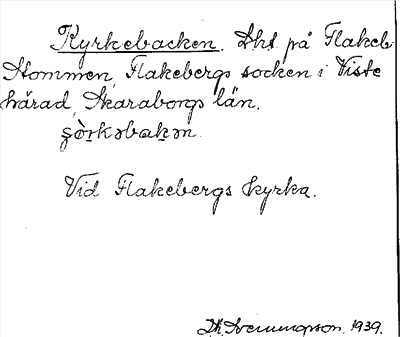 Kyrkebacken. Lht. på Flakeb.
Stommen, Flakebergs socken i Viste
härad, Skaraborgs län.
Vid Flakebergs kyrka.
1939.